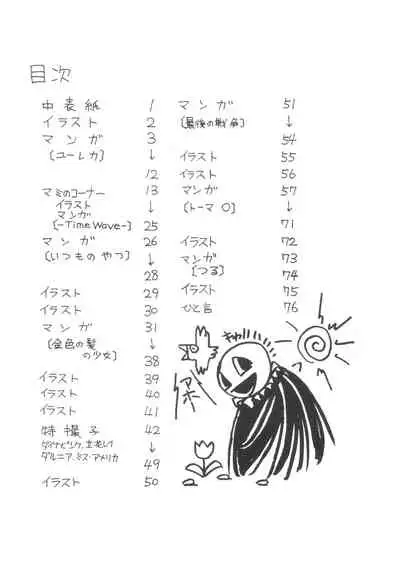 目次
中表紙 1
イラスト 2
マンガ 3
[ユーレカ] ↓
12
マミのコーナー 13
イラスト
マンガ ↓
[-Time Wave-] 25
マンガ 26
[いつものやつ] ↓
28
イラスト 29
イラスト 30
マンガ 31
[金色の髪 ↓
の少女] 38
イラスト 39
イラスト 40
イラスト 41
特撮子 42
ダルニア、ミス・アメリカ
49
イラスト 50
マンガ 51
[最後の戦争] ↓
54
イラスト 55
イラスト 56
マンガ 57
[トーマ O] ↓
71
イラスト 72
マンガ 73
[つる] 74
イラスト 75
ひと言 76
アホ